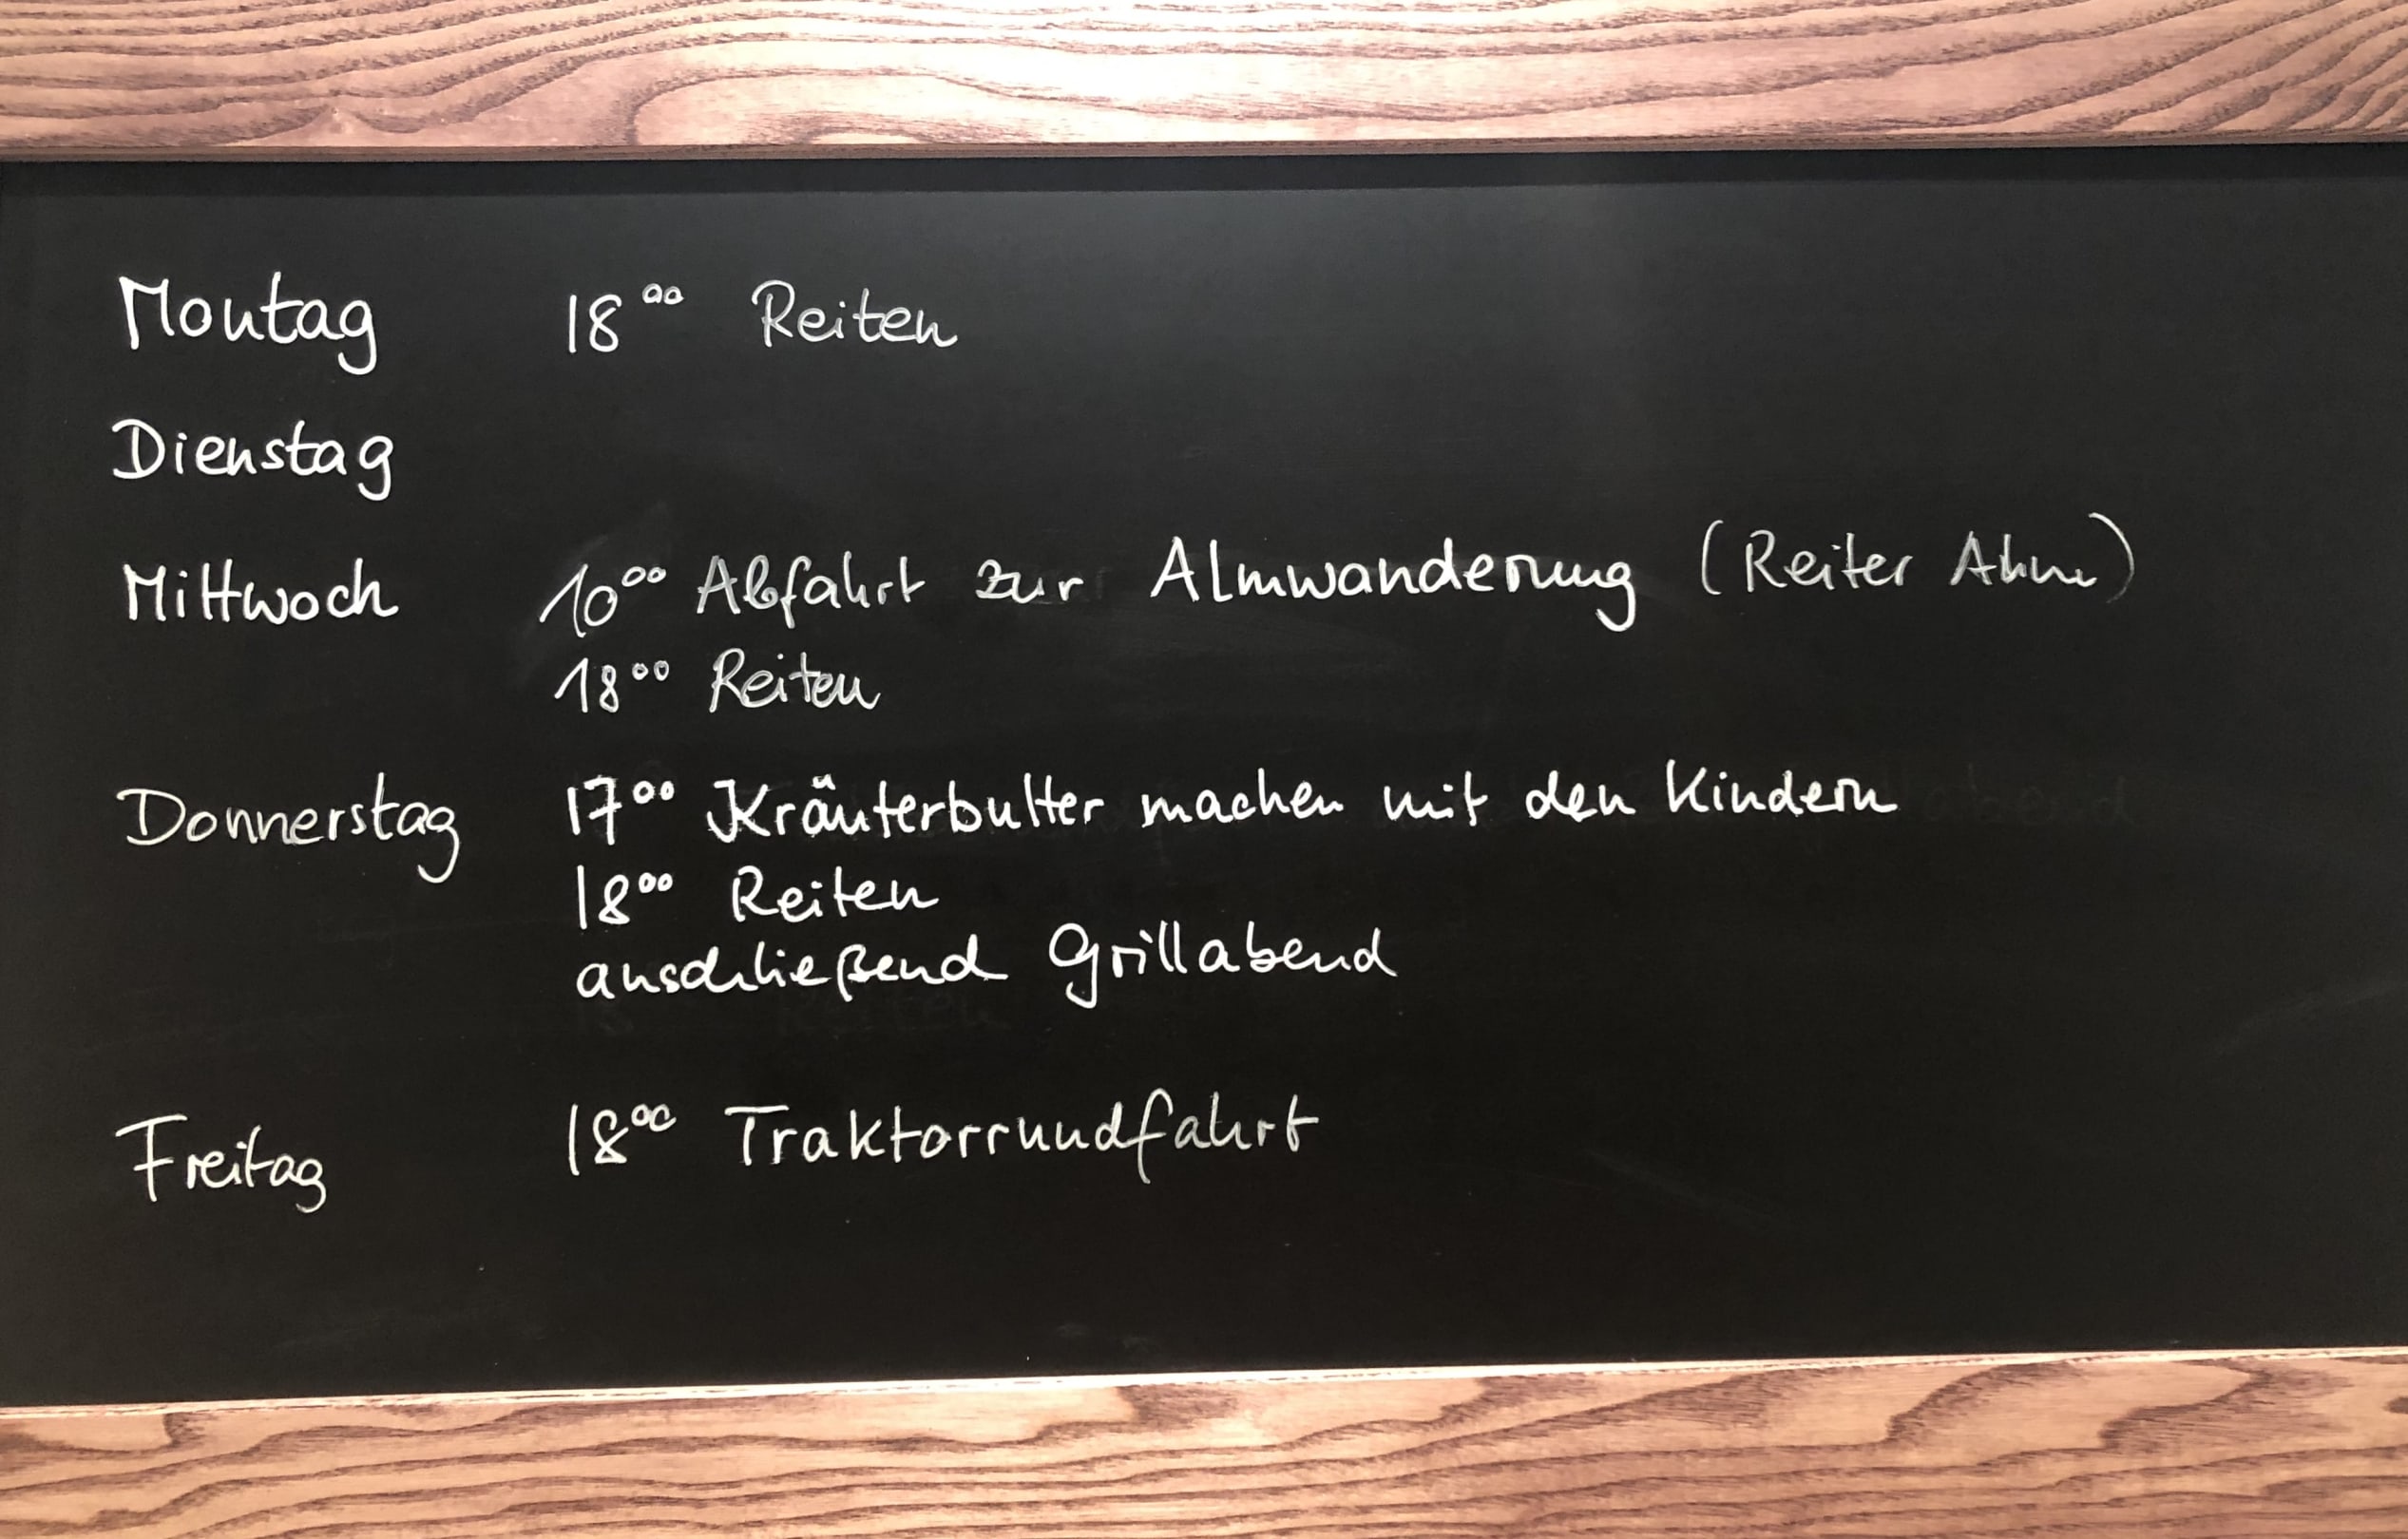 Montag 18⁰⁰ Reiten
Dienstag
Mittwoch 10⁰⁰ Abfahrt zur Almwanderung (Reiter Alm)
18⁰⁰ Reiten
Donnerstag 17⁰⁰ Kräuterbutter machen mit den Kindern
18⁰⁰ Reiten
anschließend Grillabend
Freitag 18⁰⁰ Traktorrundfahrt